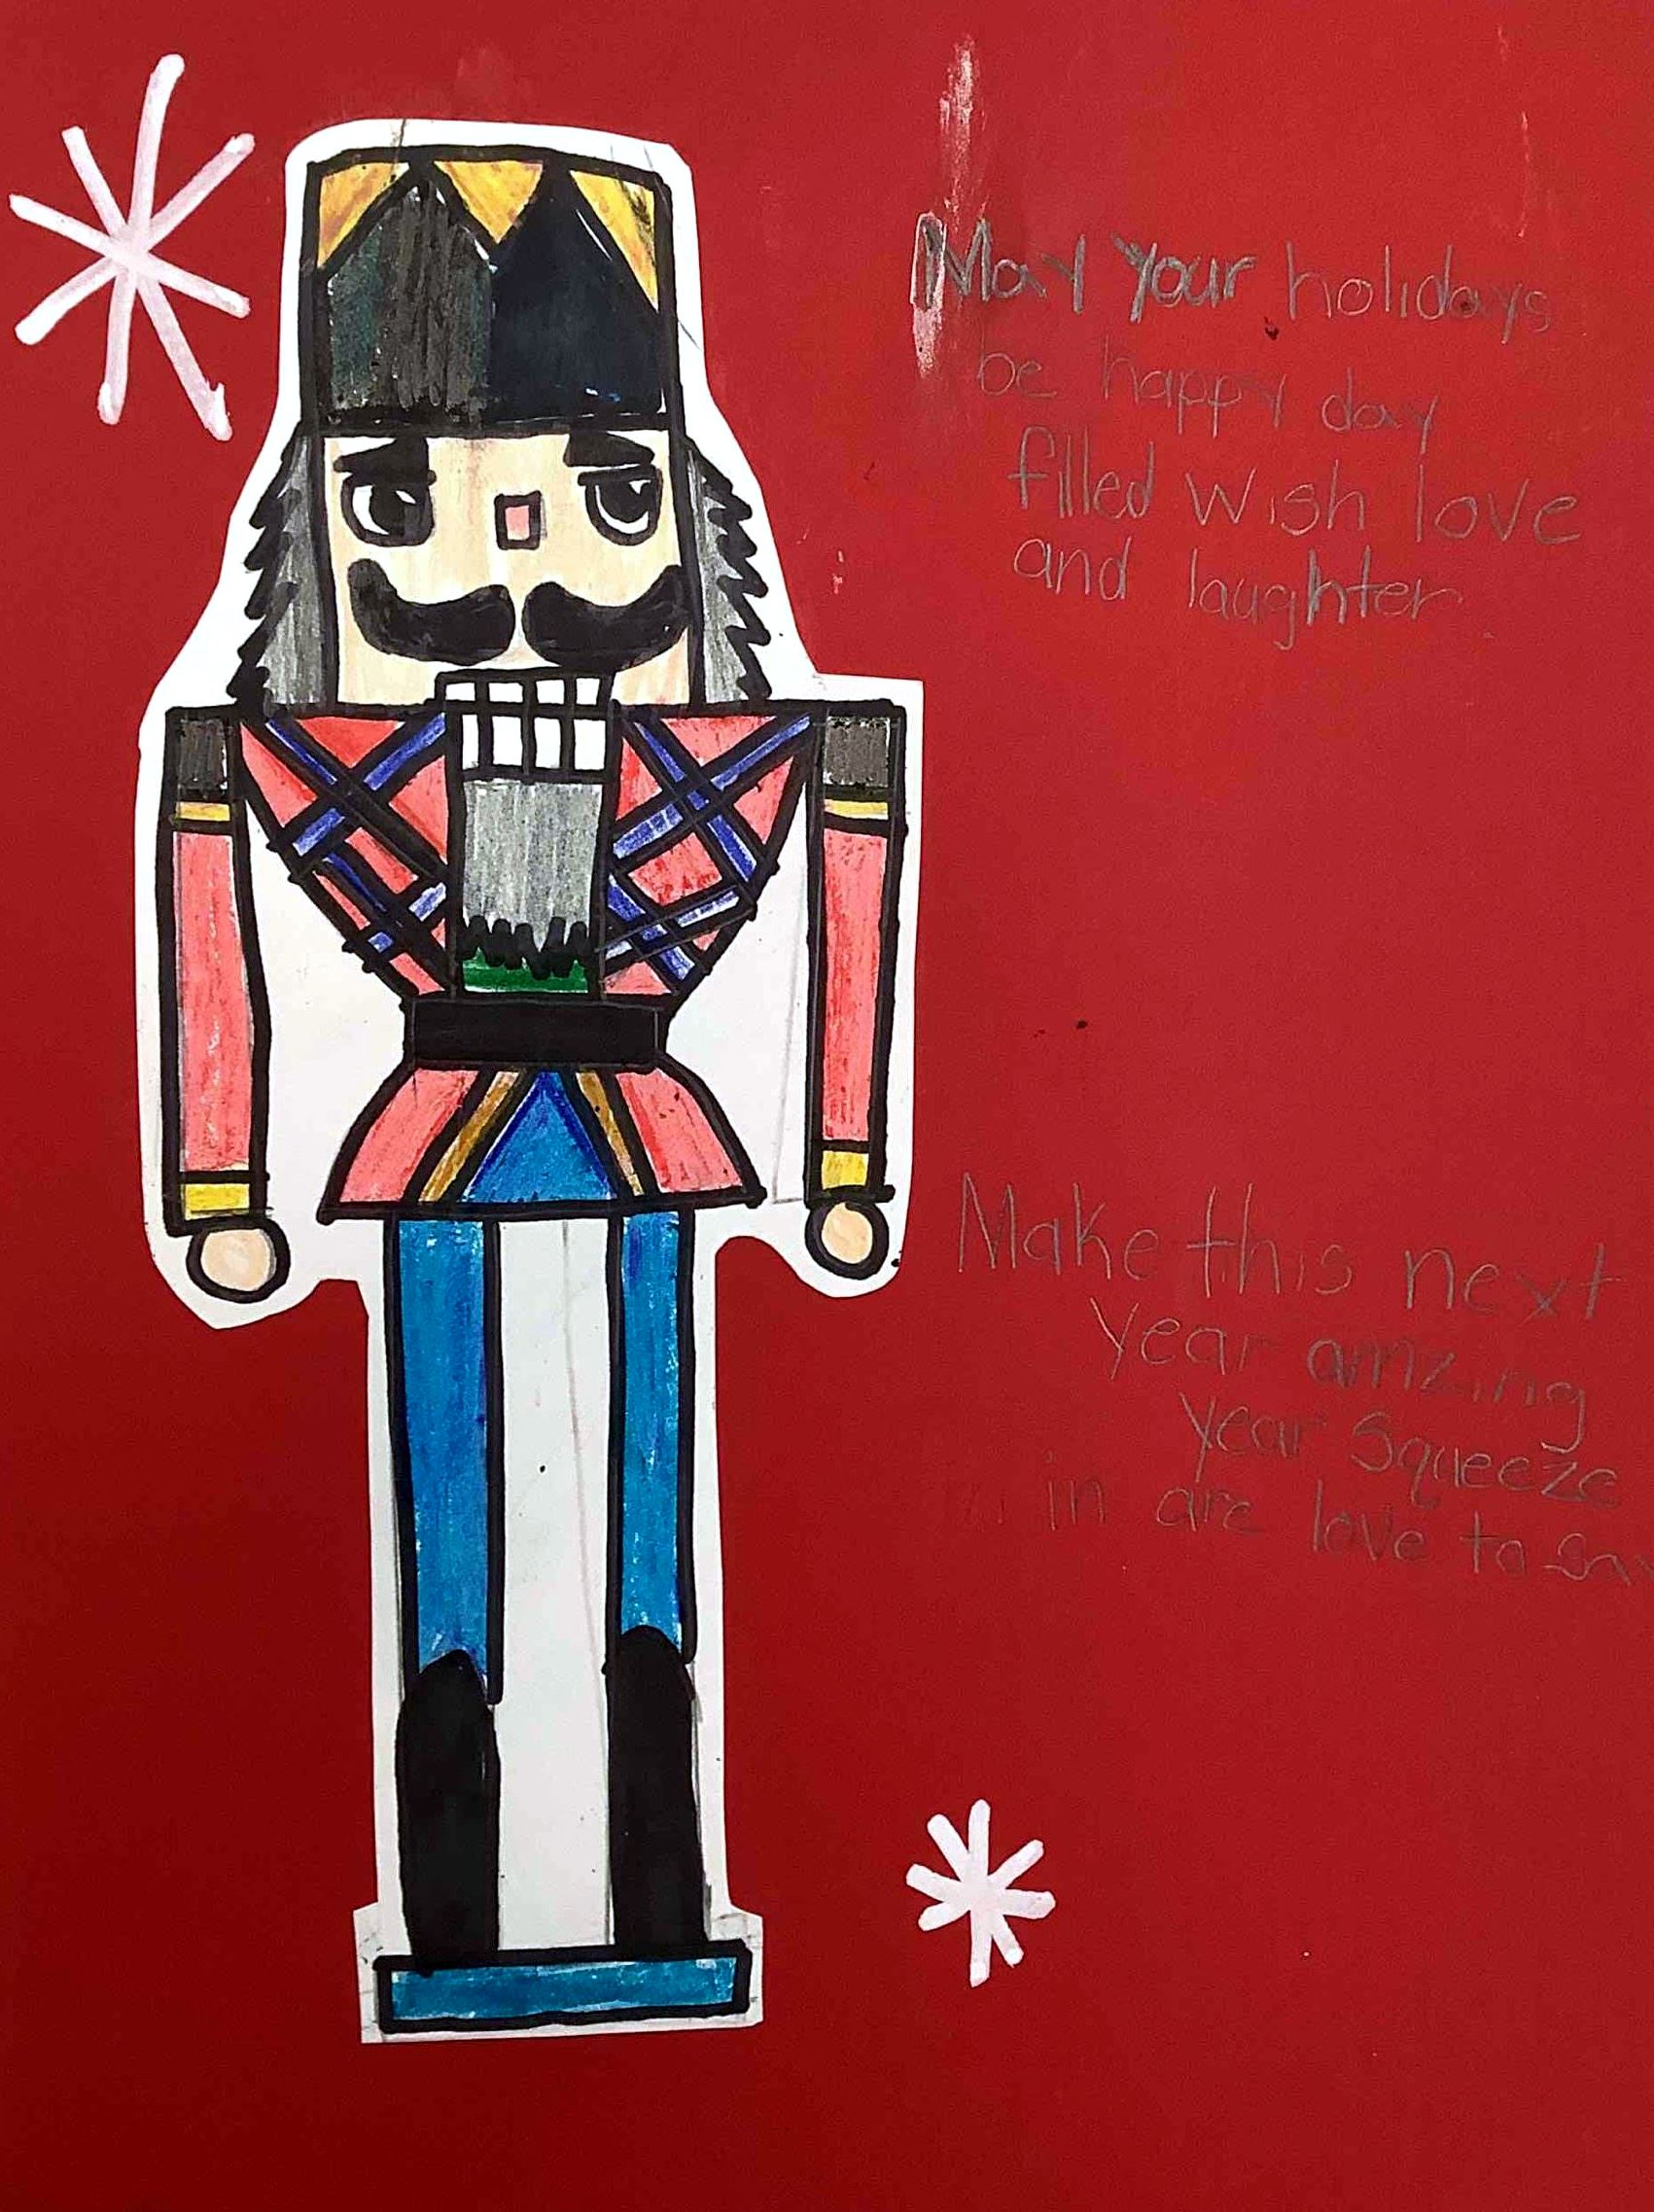 May your holidays
be happy day
filled wish love
and laughter
Make this next
year amzing
year squeeze
in are love to